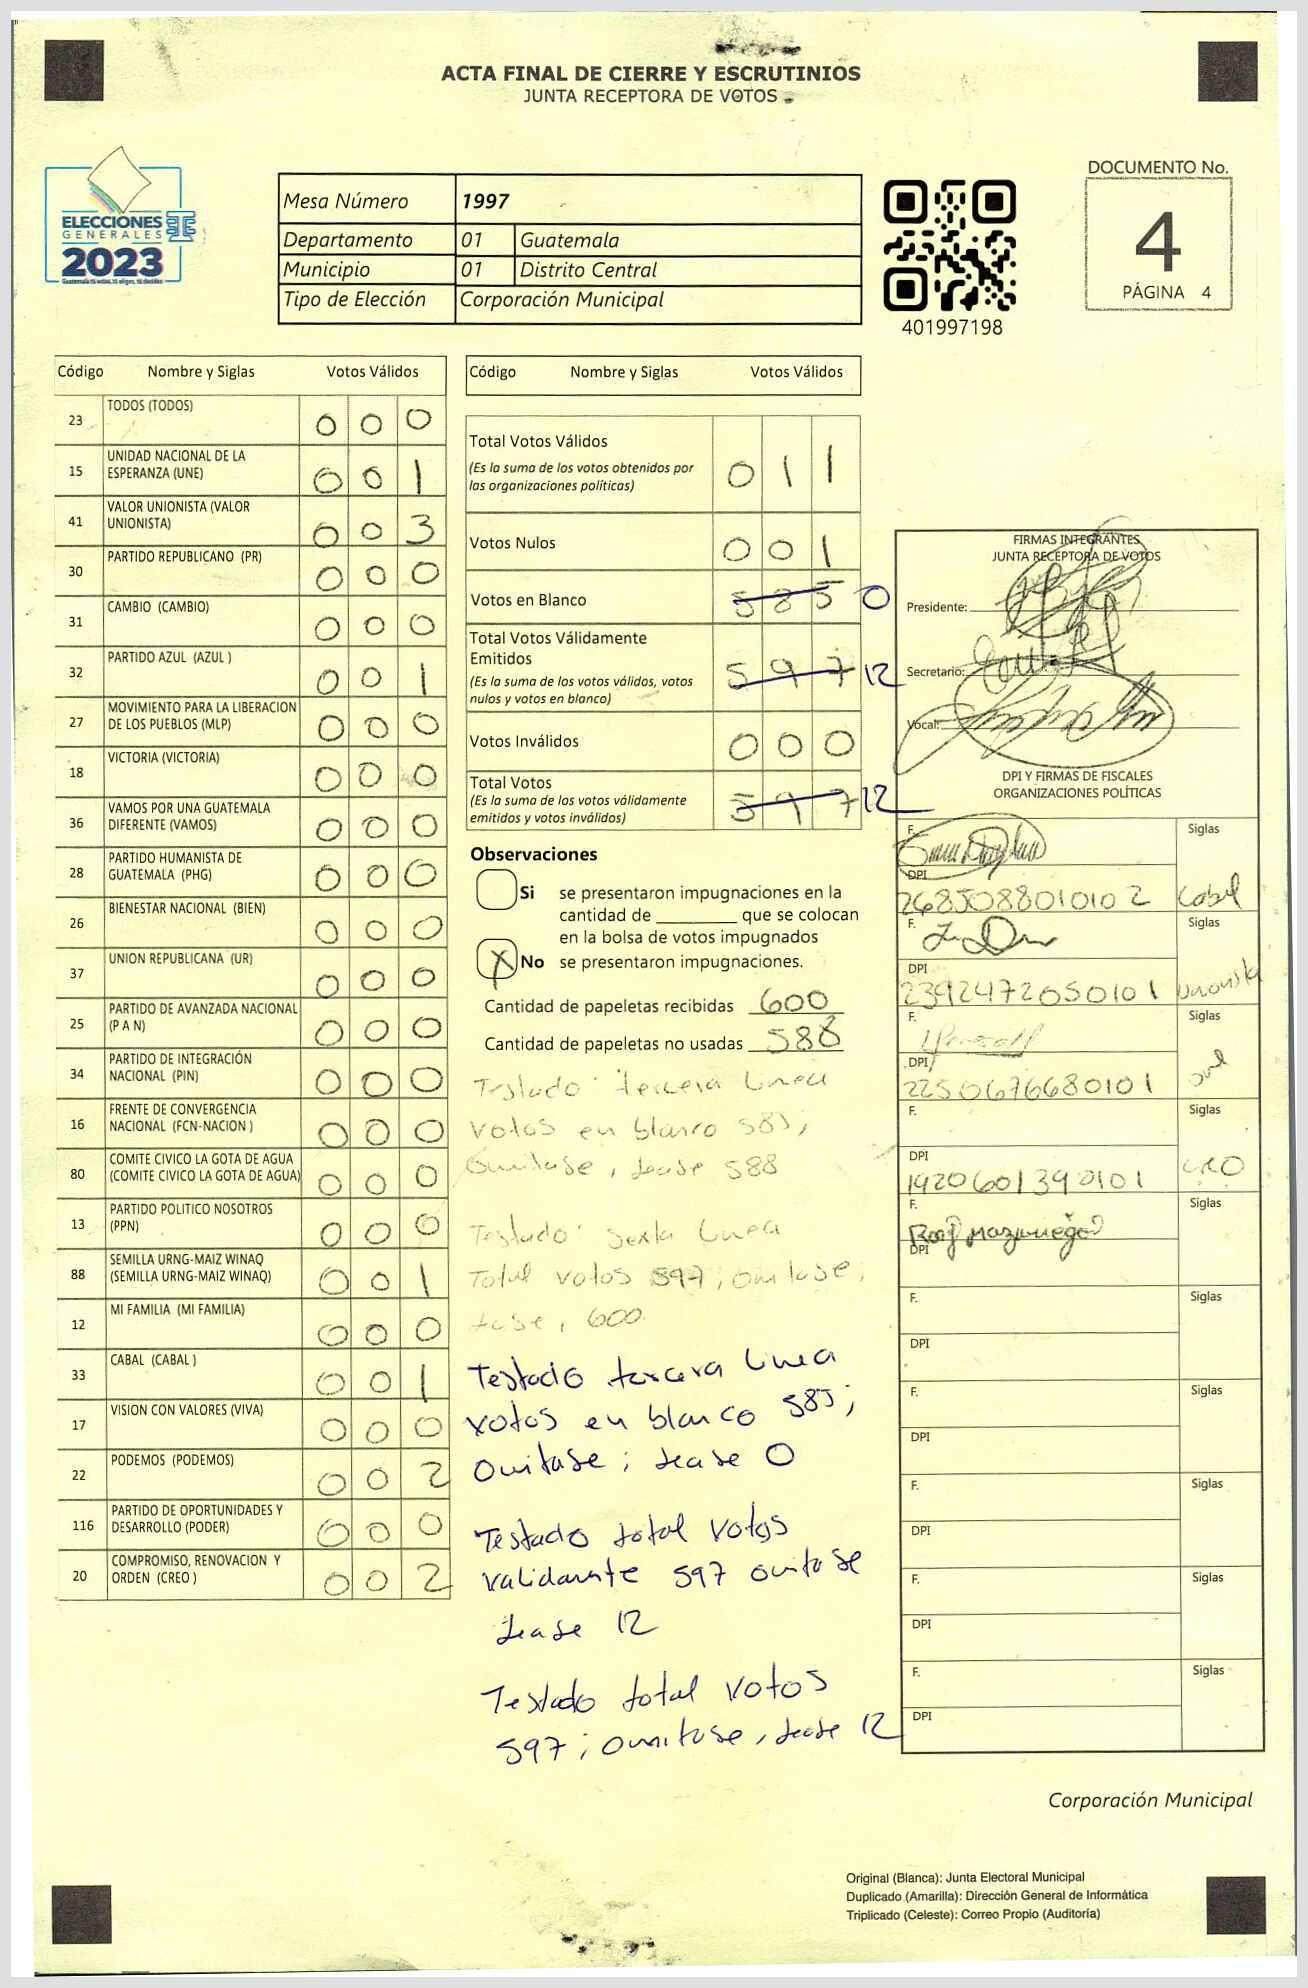 ACTA FINAL DE CIERRE Y ESCRUTINIOS
JUNTA RECEPTORA DE VOTOS
ELECCIONES
GENERALES
2023
Mesa Número 1997
Departamento 01 Guatemala
Municipio 01 Distrito Central
Tipo de Elección Corporación Municipal
401997198
DOCUMENTO No.
4
PÁGINA 4
Código Nombre y Siglas Votos Válidos
23 TODOS (TODOS) 0 0 0
15 UNIDAD NACIONAL DE LA ESPERANZA (UNE) 0 0 1
41 VALOR UNIONISTA (VALOR UNIONISTA) 0 0 3
30 PARTIDO REPUBLICANO (PR) 0 0 0
31 CAMBIO (CAMBIO) 0 0 0
32 PARTIDO AZUL (AZUL ) 0 0 1
27 MOVIMIENTO PARA LA LIBERACION DE LOS PUEBLOS (MLP) 0 0 0
18 VICTORIA (VICTORIA) 0 0 0
36 VAMOS POR UNA GUATEMALA DIFERENTE (VAMOS) 0 0 0
28 PARTIDO HUMANISTA DE GUATEMALA (PHG) 0 0 0
26 BIENESTAR NACIONAL (BIEN) 0 0 0
37 UNION REPUBLICANA (UR) 0 0 0
25 PARTIDO DE AVANZADA NACIONAL (P A N) 0 0 0
34 PARTIDO DE INTEGRACIÓN NACIONAL (PIN) 0 0 0
16 FRENTE DE CONVERGENCIA NACIONAL (FCN-NACION ) 0 0 0
80 COMITE CIVICO LA GOTA DE AGUA (COMITE CIVICO LA GOTA DE AGUA) 0 0 0
13 PARTIDO POLITICO NOSOTROS (PPN) 0 0 0
88 SEMILLA URNG-MAIZ WINAQ (SEMILLA URNG-MAIZ WINAQ) 0 0 1
12 MI FAMILIA (MI FAMILIA) 0 0 0
33 CABAL (CABAL ) 0 0 1
17 VISION CON VALORES (VIVA) 0 0 0
22 PODEMOS (PODEMOS) 0 0 2
116 PARTIDO DE OPORTUNIDADES Y DESARROLLO (PODER) 0 0 0
20 COMPROMISO, RENOVACION Y ORDEN (CREO ) 0 0 2
Código Nombre y Siglas Votos Válidos
Total Votos Válidos 0 1 1
(Es la suma de los votos obtenidos por
las organizaciones políticas)
Votos Nulos 0 0 1
Votos en Blanco 5 8 5 0
Total Votos Válidamente
Emitidos 5 9 7 12
(Es la suma de los votos válidos, votos
nulos y votos en blanco)
Votos Inválidos 0 0 0
Total Votos 5 9 7 12
(Es la suma de los votos válidamente
emitidos y votos inválidos)
Observaciones
Si se presentaron impugnaciones en la
cantidad de ________ que se colocan
en la bolsa de votos impugnados
X No se presentaron impugnaciones.
Cantidad de papeletas recibidas 600
Cantidad de papeletas no usadas 588
Testado: tercera linea
votos en blanco 585;
Omitase, Lease 588
Testado: Sexta linea
Total votos 597; omitase;
lease, 600
Testado tercera linea
votos en blanco 585;
Omitase; Lease 0
Testado total votos
validamente 597 omitase
Lease 12
Testado total votos
597; omitase, Lease 12
FIRMAS INTEGRANTES
JUNTA RECEPTORA DE VOTOS
Presidente:
Secretario:
Vocal:
DPI Y FIRMAS DE FISCALES
ORGANIZACIONES POLÍTICAS
F. Siglas
DPI
2685088010102 Cabal
F. Siglas
DPI
2392472050101 Unionista
F. Siglas
DPI
2250676680101
F. Siglas
DPI
1920601390101
F. Siglas
DPI
F. Siglas
DPI
F. Siglas
DPI
F. Siglas
DPI
F. Siglas
DPI
F. Siglas
DPI
Corporación Municipal
Original (Blanca): Junta Electoral Municipal
Duplicado (Amarilla): Dirección General de Informática
Triplicado (Celeste): Correo Propio (Auditoría)